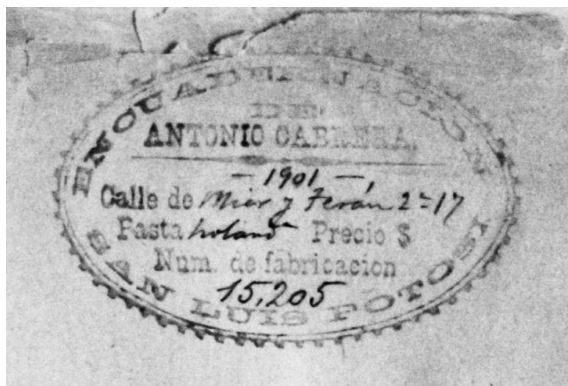 ENCUADERNACION
DE
ANTONIO CABRERA.
— 1901 —
Calle de Mier y Terán 2ª 17
Pasta holandª Precio $
Num. de fabricacion
15,205
SAN LUIS POTOSI